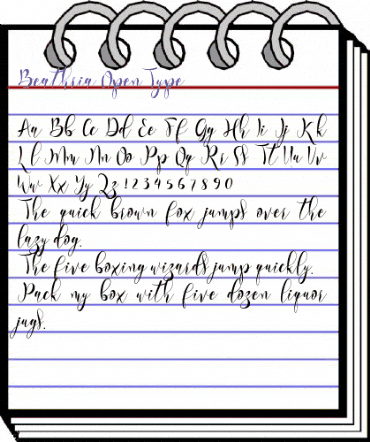 Beathria Open Type
Aa Bb Cc Dd Ee Ff Gg Hh Ii Jj Kk
Ll Mm Nn Oo Pp Qq Rr Ss Tt Uu Vv
Ww Xx Yy Zz 1 2 3 4 5 6 7 8 9 0
The quick brown fox jumps over the
lazy dog.
The five boxing wizards jump quickly.
Pack my box with five dozen liquor
jugs.